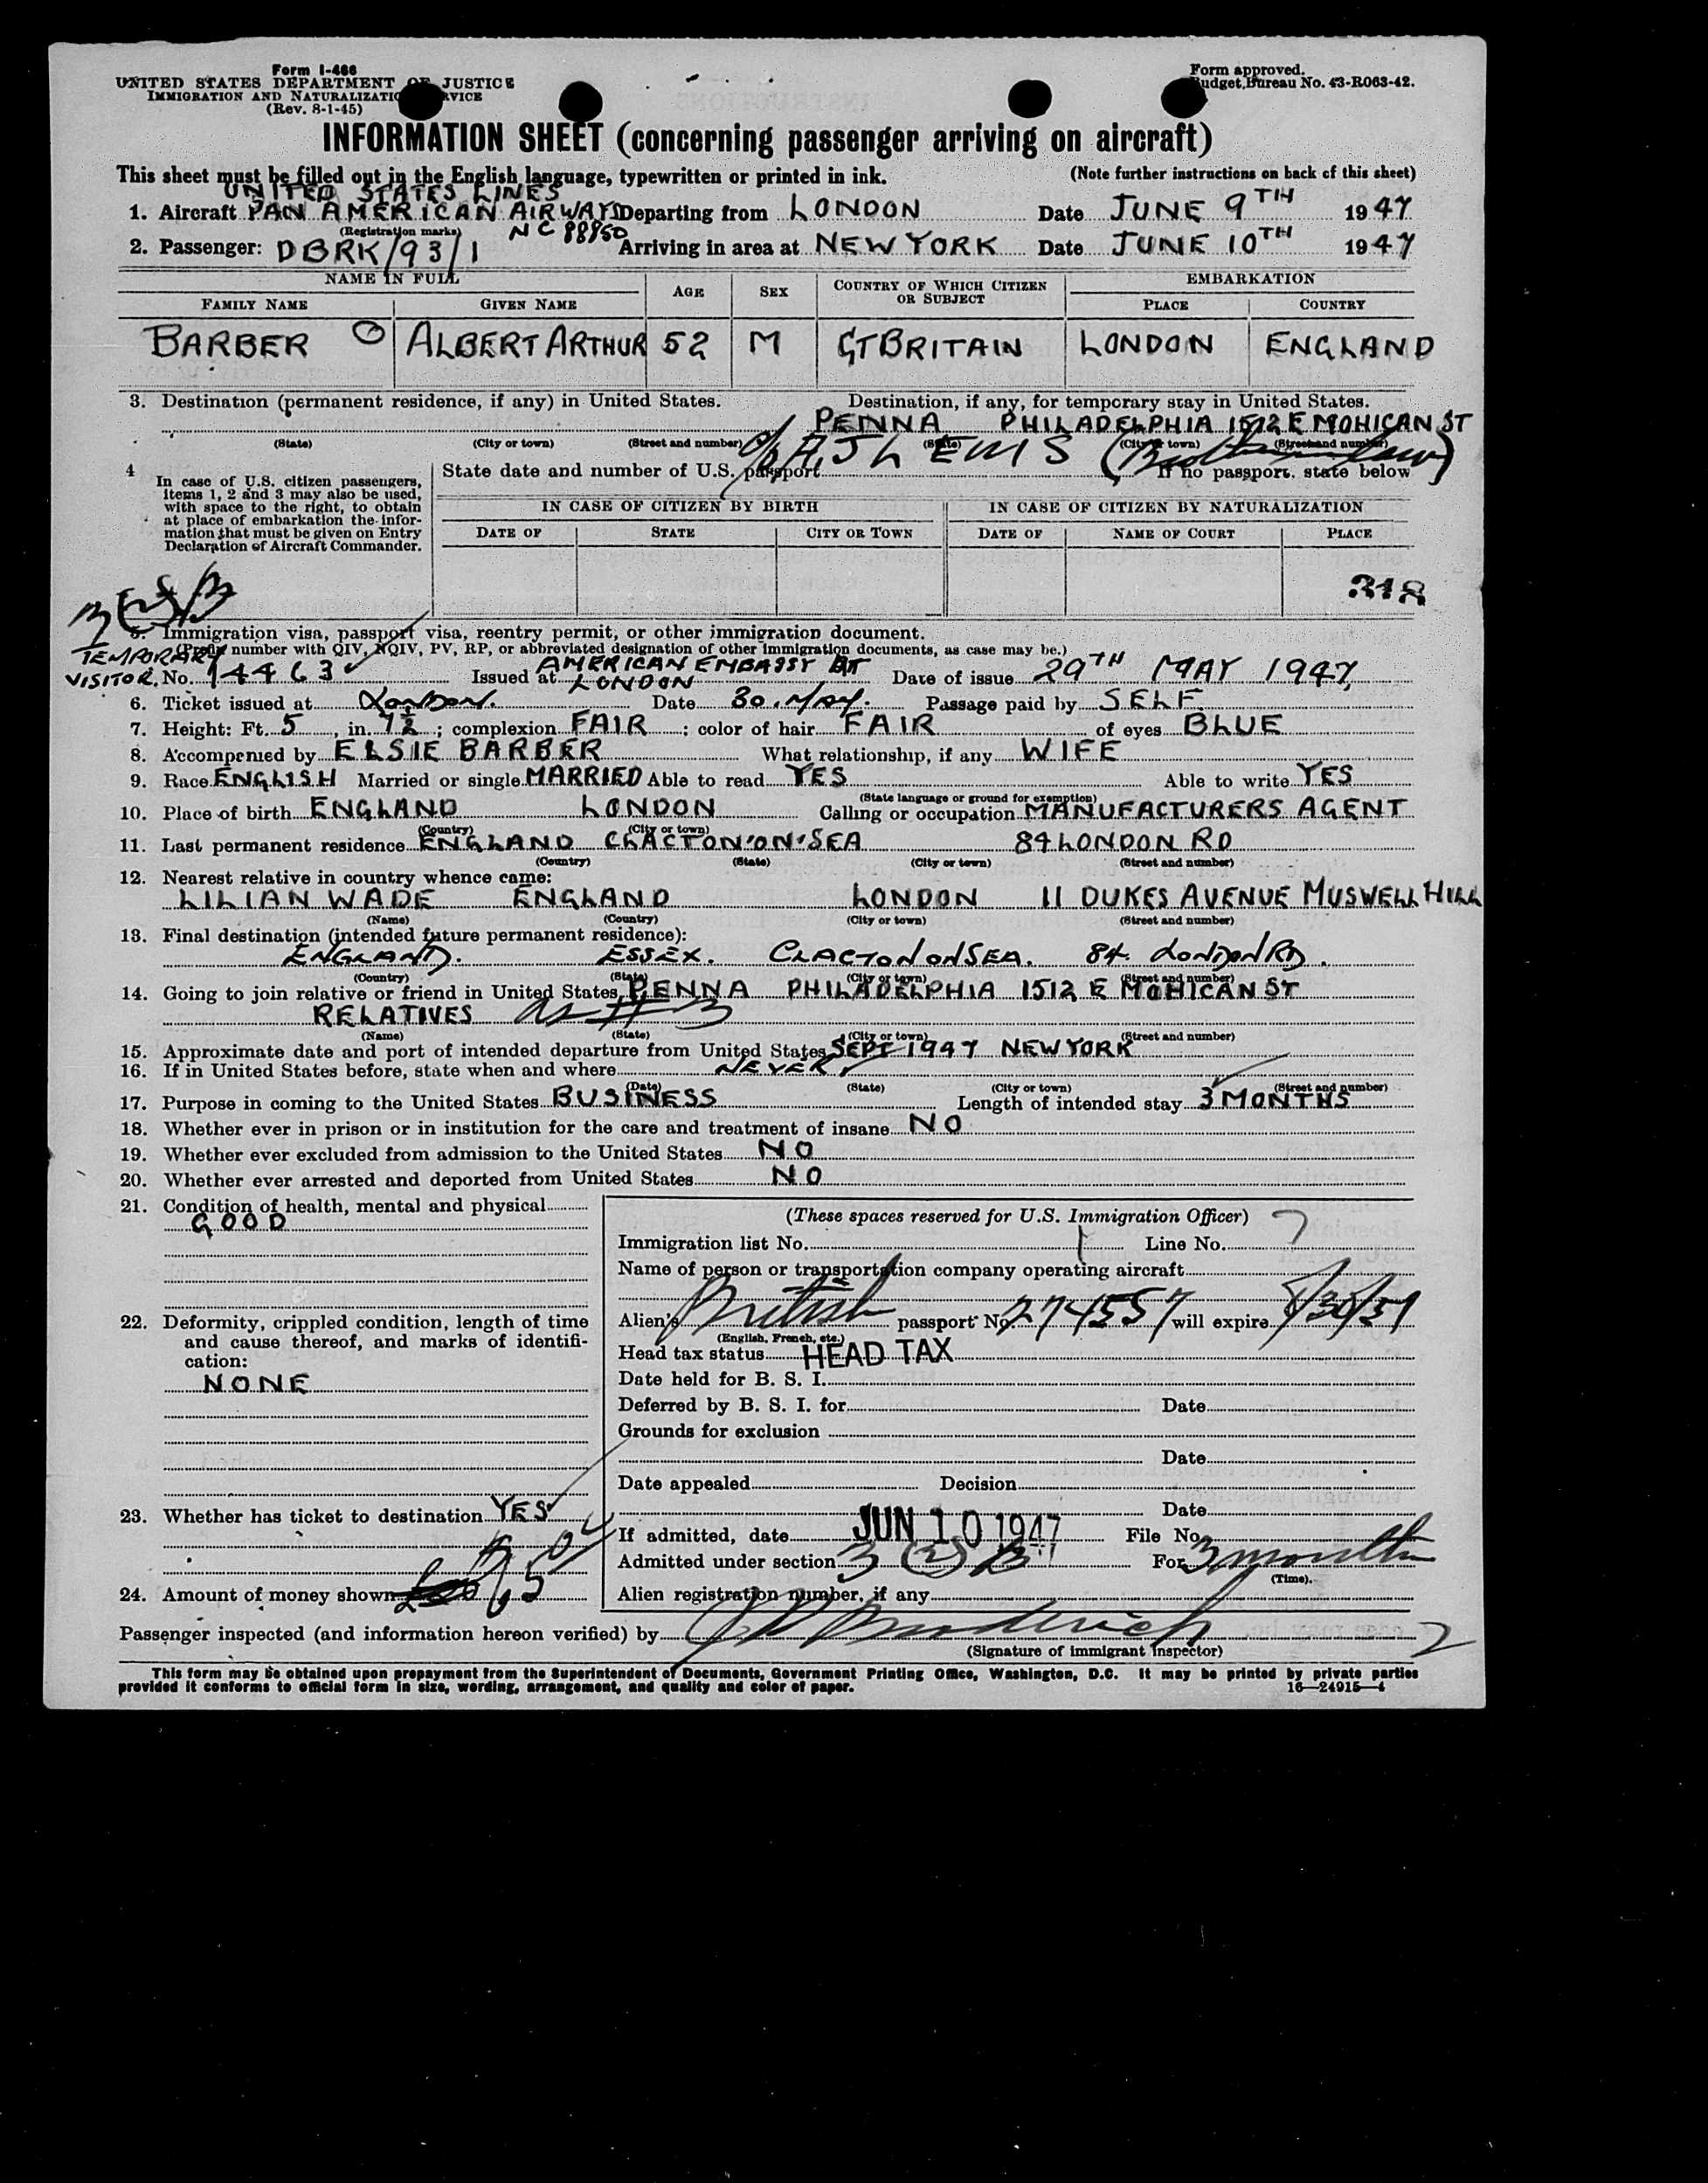 Form I-466
UNITED STATES DEPARTMENT OF JUSTICE
IMMIGRATION AND NATURALIZATION SERVICE
(Rev. 8-1-45)
Form approved.
Budget Bureau No. 43-R063-42.
INFORMATION SHEET (concerning passenger arriving on aircraft)
This sheet must be filled out in the English language, typewritten or printed in ink. (Note further instructions on back of this sheet)
UNITED STATES LINES
1. Aircraft PAN AMERICAN AIRWAYS Departing from LONDON Date JUNE 9TH 1947
(Registration marks) NC 88850
2. Passenger: DBRK/93/1 Arriving in area at NEW YORK Date JUNE 10TH 1947
NAME IN FULL AGE SEX COUNTRY OF WHICH CITIZEN OR SUBJECT EMBARKATION
FAMILY NAME GIVEN NAME PLACE COUNTRY
BARBER ALBERT ARTHUR 52 M GT BRITAIN LONDON ENGLAND
3. Destination (permanent residence, if any) in United States. Destination, if any, for temporary stay in United States.
PENNA PHILADELPHIA 1512 E MOHICAN ST
(State) (City or town) (Street and number) (State) (City or town) (Street and number)
c/o A. J. LEWIS (Brother in law)
4 In case of U.S. citizen passengers, items 1, 2 and 3 may also be used, with space to the right, to obtain at place of embarkation the information that must be given on Entry Declaration of Aircraft Commander.
State date and number of U.S. passport If no passport, state below
IN CASE OF CITIZEN BY BIRTH IN CASE OF CITIZEN BY NATURALIZATION
DATE OF STATE CITY OR TOWN DATE OF NAME OF COURT PLACE
318
3(2)B
5. Immigration visa, passport visa, reentry permit, or other immigration document.
(Prefix number with QIV, NQIV, PV, RP, or abbreviated designation of other immigration documents, as case may be.)
TEMPORARY VISITOR. No. 14463 Issued at AMERICAN EMBASSY AT LONDON Date of issue 29TH MAY 1947
6. Ticket issued at London. Date 30. May. Passage paid by SELF
7. Height: Ft. 5, in. 7½; complexion FAIR; color of hair FAIR of eyes BLUE
8. Accompanied by ELSIE BARBER What relationship, if any WIFE
9. Race ENGLISH Married or single MARRIED Able to read YES Able to write YES
(State language or ground for exemption)
10. Place of birth ENGLAND LONDON Calling or occupation MANUFACTURERS AGENT
(Country) (City or town)
11. Last permanent residence ENGLAND CLACTON'ON'SEA 84 LONDON RD
(Country) (State) (City or town) (Street and number)
12. Nearest relative in country whence came:
LILIAN WADE ENGLAND LONDON 11 DUKES AVENUE MUSWELL HILL
(Name) (Country) (City or town) (Street and number)
13. Final destination (intended future permanent residence):
ENGLAND. ESSEX. CLACTON ON SEA. 84. LONDON RD.
(Country) (State) (City or town) (Street and number)
14. Going to join relative or friend in United States PENNA PHILADELPHIA 1512 E MOHICAN ST
RELATIVES as # 3
(Name) (State) (City or town) (Street and number)
15. Approximate date and port of intended departure from United States SEPT 1947 NEW YORK
16. If in United States before, state when and where NEVER
(Date) (State) (City or town) (Street and number)
17. Purpose in coming to the United States BUSINESS Length of intended stay 3 MONTHS
18. Whether ever in prison or in institution for the care and treatment of insane NO
19. Whether ever excluded from admission to the United States NO
20. Whether ever arrested and deported from United States NO
21. Condition of health, mental and physical
GOOD
22. Deformity, crippled condition, length of time and cause thereof, and marks of identification:
NONE
23. Whether has ticket to destination YES
24. Amount of money shown
(These spaces reserved for U.S. Immigration Officer)
Immigration list No. 1 Line No. 7
Name of person or transportation company operating aircraft
Alien's British passport No. 274557 will expire
(English, French, etc.)
Head tax status HEAD TAX
Date held for B. S. I.
Deferred by B. S. I. for Date
Grounds for exclusion
Date
Date appealed Decision
Date
If admitted, date JUN 10 1947 File No.
Admitted under section 3 (2) B For 3 months
(Time).
Alien registration number, if any
Passenger inspected (and information hereon verified) by 2
(Signature of immigrant inspector)
This form may be obtained upon prepayment from the Superintendent of Documents, Government Printing Office, Washington, D.C. It may be printed by private parties
provided it conforms to official form in size, wording, arrangement, and quality and color of paper. 16—24915-4